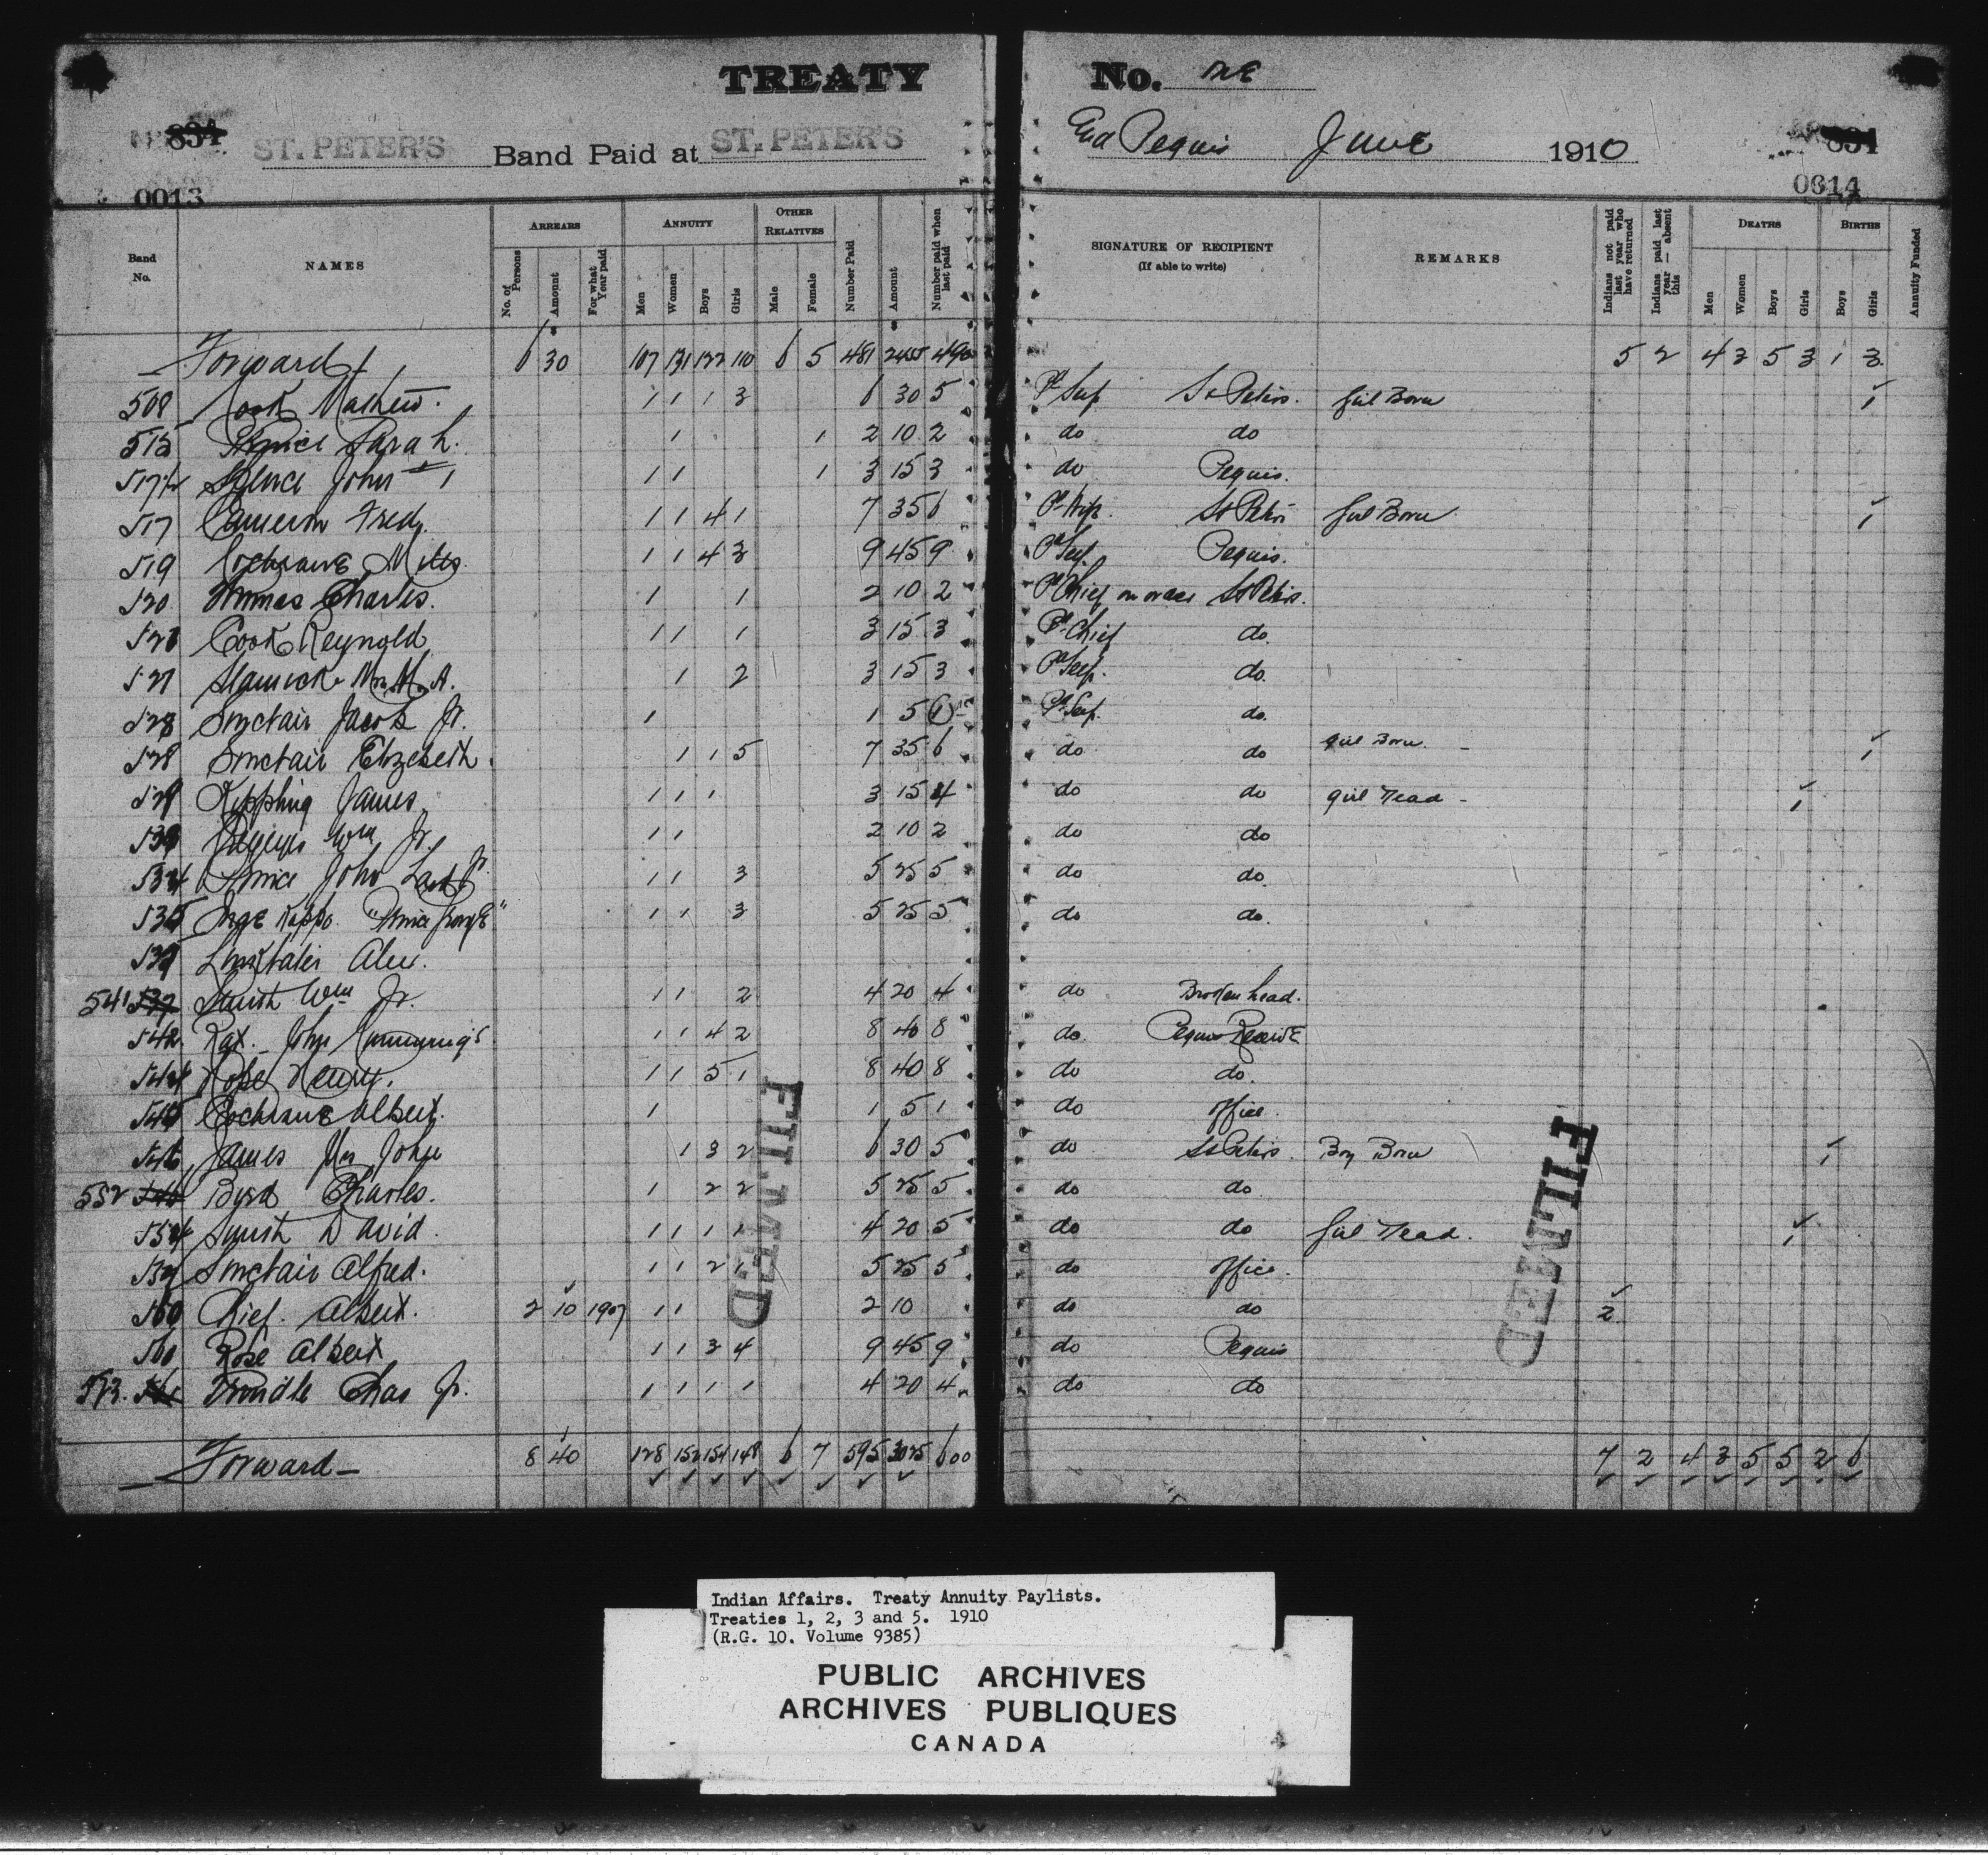 TREATY No. ONE
834 ST. PETER'S Band Paid at ST. PETER'S And Peguis June 1910 834
0013 0014
Band No. NAMES ARREARS No. of Persons Amount For what Year paid ANNUITY Men Women Boys Girls OTHER RELATIVES Male Female Number Paid Amount Number paid when last paid SIGNATURE OF RECIPIENT (If able to write) REMARKS Indians not paid last year who have returned Indians paid last year — absent this DEATHS Men Women Boys Girls BIRTHS Boys Girls Annuity Funded
Forward 6 30 107 131 122 110 6 5 481 2455 490 5 2 4 3 5 3 1 3
508 Cook Mathew. 1 1 1 3 6 30 5 Pd Self St Peters. Girl Born 1
515 Prince Sarah. 1 1 2 10 2 do do
517½ Spence John 1 1 1 3 15 3 do Peguis.
517 Cameron Fred. 1 1 4 1 7 35 6 Pd Wife St Peters Girl Born 1
519 Cochrane Miles. 1 1 4 3 9 45 9 Pd Self. Peguis.
520 Thomas Charles. 1 1 2 10 2 Pd Chief on order St Peters.
526 Cook Reynold 1 1 1 3 15 3 Pd Chief do.
527 Mrs. M. A. 1 2 3 15 3 Pd Self. do.
528 Sinclair Jacob Jr. 1 1 5 1 Pd Self. do.
528 Sinclair Elizebeth. 1 1 5 7 35 6 do do Girl Born. 1
529 Kippling James 1 1 1 3 15 4 do do Girl Dead - 1
Wm Jr. 1 1 2 10 2 do do
534 Prince John Jr. 1 1 3 5 25 5 do do.
535 "Prince George" 1 1 3 5 25 5 do do.
Alex.
541 Smith Wm Jr. 1 1 2 4 20 4 do Broken head.
542 John Cummings 1 1 4 2 8 40 8 do. Peguis Reserve
544 Rose Henry. 1 1 5 1 8 40 8 do do.
545 Cochrane Albert. 1 1 5 1 do office.
546 James Mrs John 1 3 2 6 30 5 do St Peters. Boy Born 1
552 Byrd Charles. 1 2 2 5 25 5 do do
554 Smith David. 1 1 1 1 4 20 5 do do Girl Dead. 1
Sinclair Alfred. 1 1 2 1 5 25 5 do office.
560 Chief. Albert. 2 10 1907 1 1 2 10 do do 2
560 Rose Albert 1 1 3 4 9 45 9 do Peguis
573. Trindle Chas Jr. 1 1 1 1 4 20 4 do do
Forward 8 40 128 152 154 148 6 7 595 3025 600 7 2 4 3 5 5 2 6
FILMED
FILMED
Indian Affairs. Treaty Annuity Paylists.
Treaties 1, 2, 3 and 5. 1910
(R.G. 10. Volume 9385)
PUBLIC ARCHIVES
ARCHIVES PUBLIQUES
CANADA